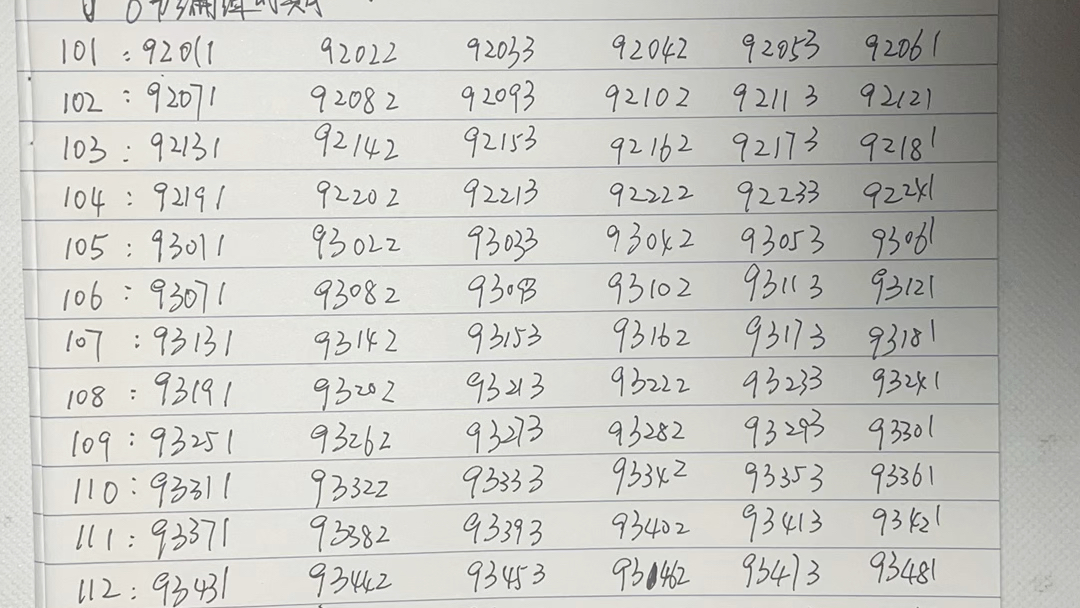 101 : 92011 92022 92033 92042 92053 92061
102 : 92071 92082 92093 92102 92113 92121
103 : 92131 92142 92153 92162 92173 92181
104 : 92191 92202 92213 92222 92233 92241
105 : 93011 93022 93033 93042 93053 93061
106 : 93071 93082 93093 93102 93113 93121
107 : 93131 93142 93153 93162 93173 93181
108 : 93191 93202 93213 93222 93233 93241
109 : 93251 93262 93273 93282 93293 93301
110 : 93311 93322 93333 93342 93353 93361
111 : 93371 93382 93393 93402 93413 93421
112 : 93431 93442 93453 93462 93473 93481